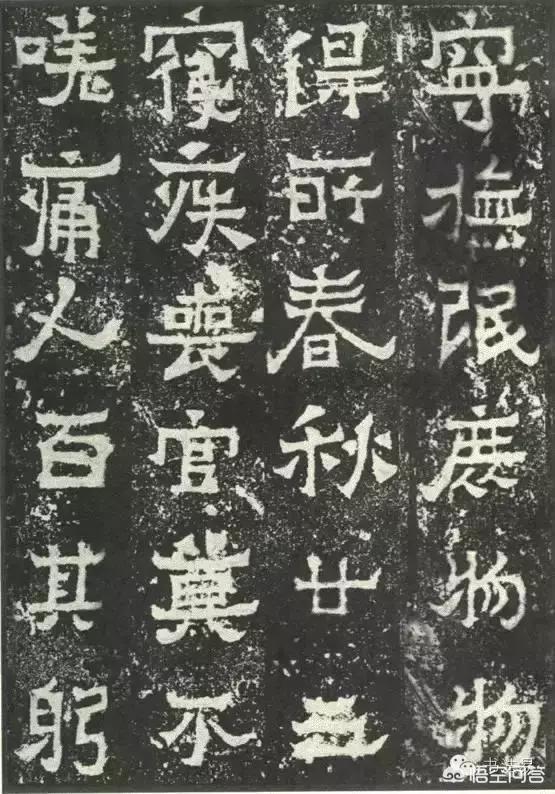 寧撫氓庶物物
得所春秋廿
寢疾喪官莫不
嗟痛人百其躬
悟空问答